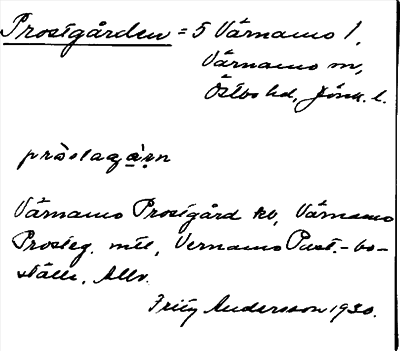 Prostgården = 5 Värnamo 1,
Värnamo m,
Östbo hd, Jönk. l.
pròstagạ̀ṛn
Värnamo Prostgård kb, Värnamo
Prosteg. mtl, Vernamo Past.-bo-
ställe, Allv.
Frity Andersson 1930.